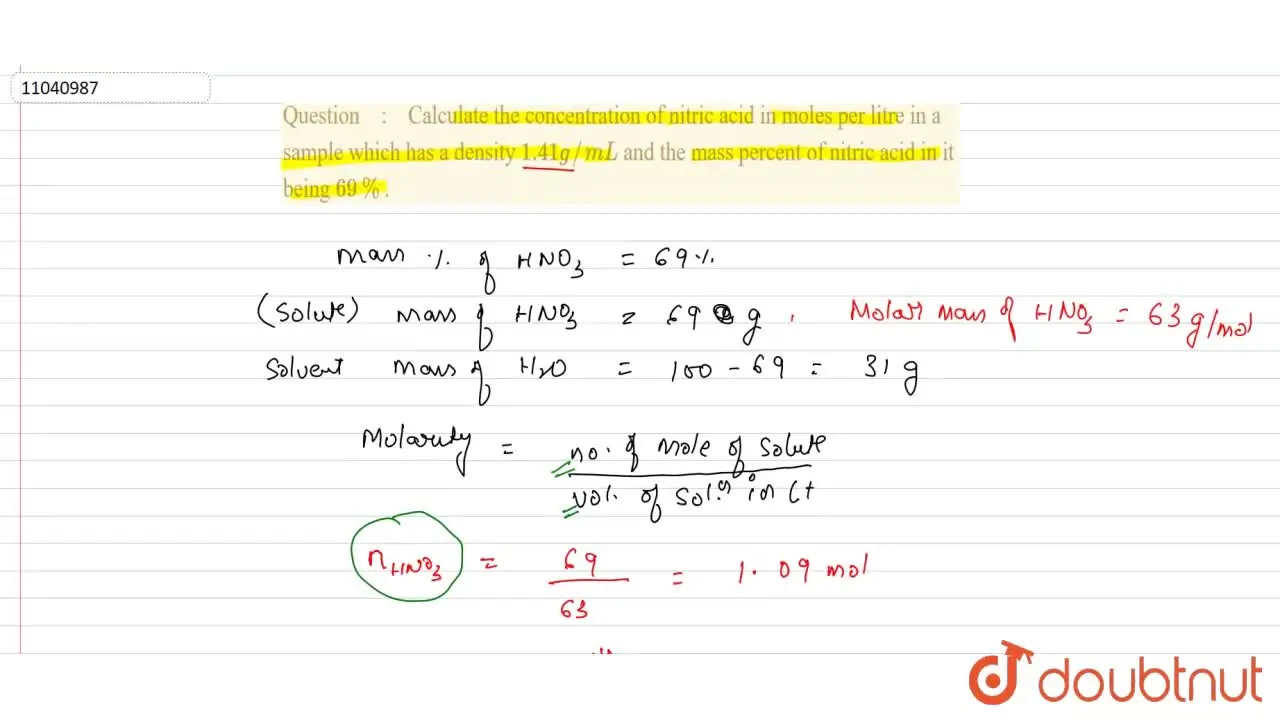 11040987
Question : Calculate the concentration of nitric acid in moles per litre in a
sample which has a density 1.41g/mL and the mass percent of nitric acid in it
being 69%.
Mass % of HNO3 = 69%
(Solute) mass of HNO3 = 69 g , Molar mass of HNO3 = 63 g/mol
Solvent mass of H2O = 100 - 69 = 31 g
Molarity = no. of mole of solute
vol. of sol.n in Lt
nHNO3 = 69 = 1.09 mol
63
doubtnut